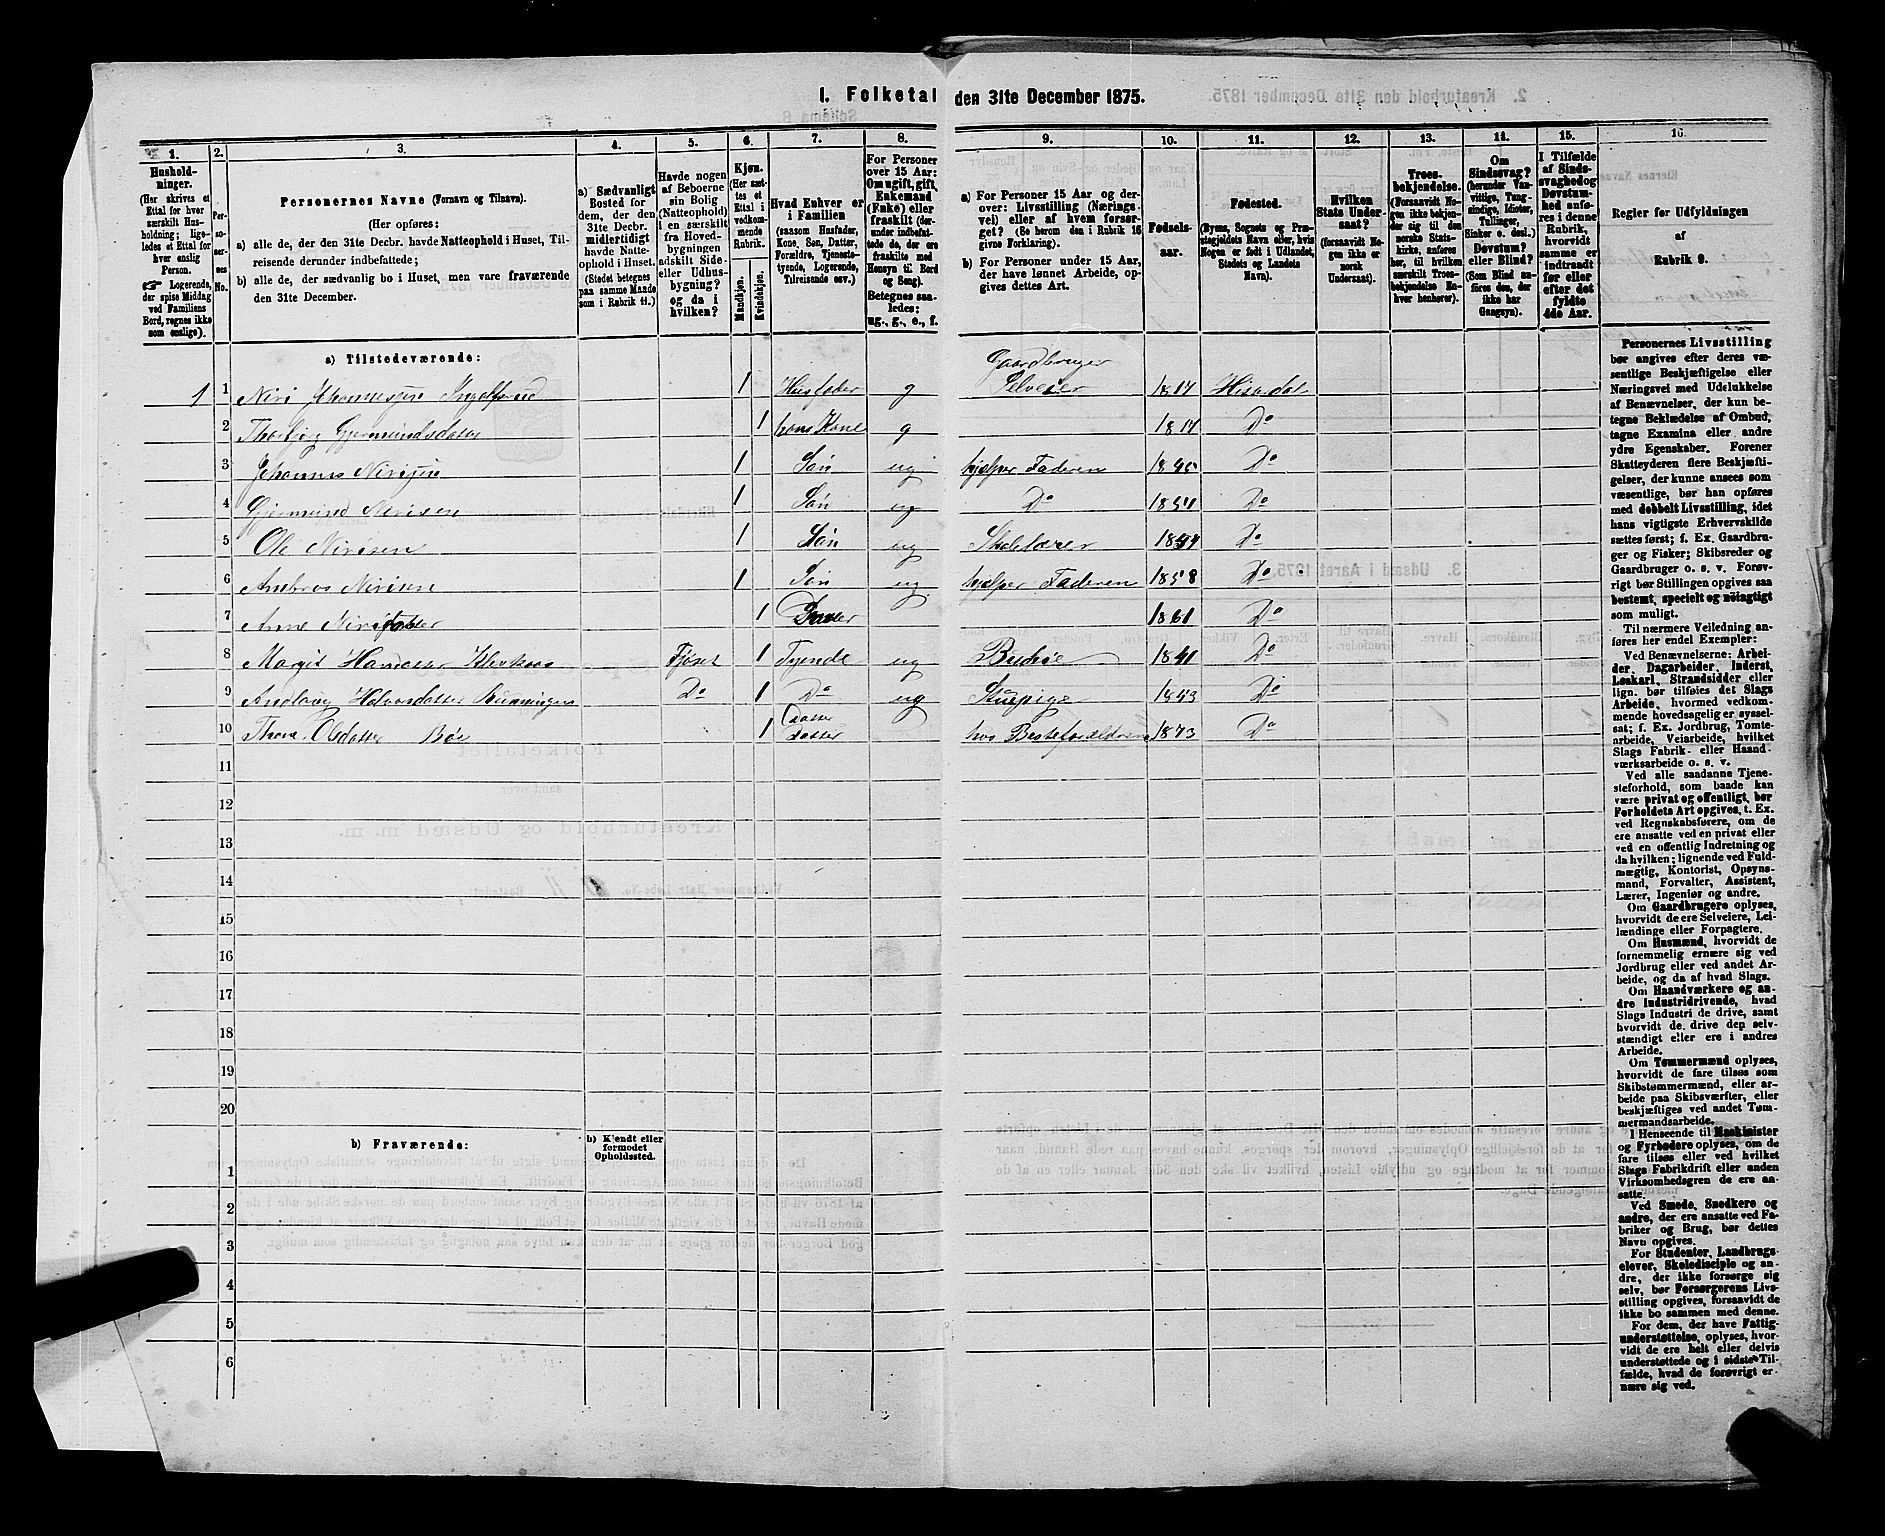 1. Folketal den 31te December 1875.
1.
Husholdninger.
(Her skrives et Ettal for hver særskilt Husholdning; ligeledes et Ettal for hver enslig Person.
☞ Logerende, der spise Middag ved Familiens Bord, regnes ikke som enslige).
2.
Personernes No.
3.
Personernes Navne (Fornavn og Tilnavn).
(Her opføres:
a) alle de, der den 31te Decbr. havde Natteophold i Huset, Tilreisende derunder indbefattede;
b) alle de, der sædvanlig bo i Huset, men vare fraværende den 31te December.
4.
a) Sædvanligt Bosted for dem, der den 31te Decbr. midlertidigt havde Natteophold i Huset.
(Stedet betegnes paa samme Maade som i Rubrik 11.)
5.
Havde nogen af Beboerne sin Bolig (Natteophold) i en særskilt fra Hovedbygningen adskilt Side- eller Udhusbygning? og da i hvilken?
6.
Kjøn.
(Her sættes et Ettal i vedkommende Rubrik.
Mandkjøn.
Kvindekjøn.
7.
Hvad Enhver er i Familien
(saasom Husfader, Kone, Søn, Datter, Forældre, Tjenestetyende, Logerende, Tilreisende osv.)
8.
For Personer over 15 Aar: Om ugift, gift, Enkemand (Enke) eller fraskilt (derunder indbefattede de, der ere fraskilte med Hensyn til Bord og Seng).
Betegnes saaledes: ug., g., e., f.
9.
a) For Personer 15 Aar og derover: Livsstilling (Næringsvei) eller af hvem forsørget? (Se herom den i Rubrik 16 givne Forklaring).
b) For Personer under 15 Aar, der have lønnet Arbeide, opgives dettes Art.
10.
Fødselsaar.
11.
Fødested.
(Byens, Sognets og Præstegjeldets Navn eller, hvis Nogen er født i Udlandet, Stedets og Landets Navn).
12.
Hvilken Stats Undersaat?
(forsaavidt Nogen ikke er norsk Undersaat).
13.
Troesbekjendelse.
(Forsaavidt Nogen ikke bekjender sig til den norske Statskirke, anføres her, til hvilken særskilt Troesbekjendelse Enhver henhører).
14.
Om Sindssvag?
(herunder Vanvittige, Tungsindige, Idioter, Tullinger, Sinker o. desl.)
Døvstum? eller Blind?
(Som Blind anføres den, der ikke har Gangsyn).
15.
I Tilfælde af Sindssvaghed og Døvstumhed anføres i denne Rubrik, hvorvidt samme er indtraadt før eller efter det fyldte 4de Aar.
16.
Regler for Udfyldningen af Rubrik 9.
a) Tilstedeværende:
1 1 Niri Johannesen Ingolfsrud 1 Husfader g Gaardbruger Selveier 1817 Hiterdal
2 Thorbjør Gjermundsdatter 1 hans Kone g 1817 Do
3 Johannes Nirisen 1 Søn ug hjelper Faderen Do
4 Gjermund Nirisen 1 Søn ug Do Do
5 Ole Nirisen 1 Søn ug Skolelærer Do
6 Ambros Nirisen 1 Søn ug hjelper Faderen 1858 Do
7 Anne Nirisdatter 1 Datter 1861 Do
8 Margit Fjøset 1 Tyende ug Budeie 1841 Do
9 Halvorsdatter Do 1 Do ug 1843 Do
10 Thone Olsdatter Bøe 1 Datter datter hos Besteforældrene 1873 Do
11
12
13
14
15
16
17
18
19
20
b) Fraværende:
b) Kjendt eller formodet Opholdssted.
1
2
3
4
5
6
Personernes Livsstilling bør angives efter deres væsentlige Beskjæftigelse eller Næringsvei med Udelukkelse af Benævnelser, der kun betegne Beklædelse af Ombud, tagne Examina eller andre ydre Egenskaber. Forener Skatteyderen flere Beskjæftigelser, der kunne ansees som væsentlige, bør han opføres med dobbelt Livsstilling, idet hans vigtigste Erhvervskilde sættes først; f. Ex. Gaardbruger og Fisker; Skibsreder og Gaardbruger o. s. v. Forøvrigt bør Stillingen opgives saa bestemt, specielt og nöiagtigt som muligt.
Til nærmere Veiledning anføres her endel Exempler:
Ved Benævnelserne: Arbeider, Dagarbeider, Inderst, Løskarl, Strandsidder eller lign. bør tilføies det Slags Arbeide, hvormed vedkommende hovedsagelig er sysselsat; f. Ex. Jordbrug, Tomtearbeide, Veiarbeide, hvilket Slags Fabrik- eller Haandværksarbeide o. s. v.
Ved alle saadanne Tjenesteforhold, som baade kan være privat og offentligt, bør Forholdets Art opgives, t. Ex. ved Regnskabsførere, om de ere ansatte ved en privat eller ved en offentlig Indretning og da hvilken; lignende ved Fuldmægtig, Kontorist, Opsynsmand, Forvalter, Assistent, Lærer, Ingeniør og andre.
Om Gaardbrugere oplyses, hvorvidt de ere Selveiere, Leilændinge eller Forpagtere.
Om Husmænd, hvorvidt de fornemmelig ernære sig ved Jordbrug eller ved andet Arbeide, og da af hvad Slags.
Om Haandværkere og andre Industridrivende, hvad Slags Industri de drive, samt hvorvidt de drive den selvstændigt eller ere i andres Arbeide.
Om Tømmermænd oplyses, hvorvidt de fare tilsøs som Skibstømmermænd, eller arbeide paa Skibsværfter, eller beskjæftiges ved andet Tømmermandsarbeide.
I Henseende til Maskinister og Fyrbødere oplyses, om de fare tilsøs eller ved hvilket Slags Fabrikdrift eller anden Virksomhedsgren de ere ansatte.
Ved Smede, Snedkere og andre, der ere ansatte ved Fabriker og Brug, bør dettes Navn opgives.
For Studenter, Landbrugselever, Skoledisciple og andre, der ikke forsørge sig selv, bør Forsørgerens Livsstilling opgives, forsaavidt de ikke bo sammen med denne.
For dem, der have Fattigunderstøttelse, oplyses, hvorvidt de ere helt eller delvis understøttede og i sidste Tilfælde, hvad de forøvrigt ernære sig ved.